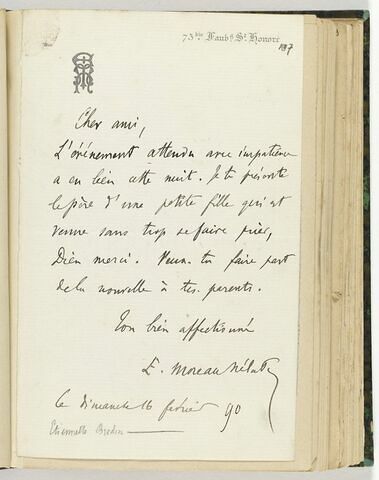 73 bis Faubg St Honoré
137
Cher ami,
L'événement attendu avec impatience
a eu lieu cette nuit. Je te présente
le père d'une petite fille qui est
venue sans trop se faire prier,
Dieu merci. Veux-tu faire part
de la nouvelle à tes parents.
Ton bien affectionné
E. Moreau Nélaton
Ce dimanche 16 février 90
Etiennette